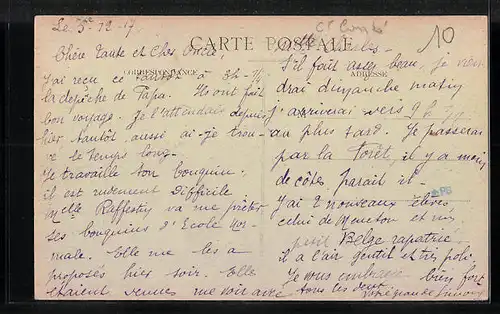 Le 3-12-17
Chère Tante et Cher Oncle,
CARTE POSTALE
CORRESPONDANCE
ADRESSE
10
J'ai reçu ce matin à 3h 1/4
la dépêche de Papa. Ils ont fait
bon voyage. Je l'attendais depuis
hier tantôt, aussi ai-je trou-
vé le temps long.
Je travaille ton bouquin;
il est rudement difficile
Melle Raffestin va me prêter
ses bouquins d'Ecole Nor-
male. Elle me les a
proposés hier soir. Elle
étaient venues me voir avec
Melle
S'il fait assez beau, je vien-
drai dimanche matin
j'arriverai vers 9h 1/2
au plus tard. Je passerai
par la forêt, il y a moins
de côtes parait il.
J'ai 2 nouveaux élèves
celui de Menetou et un
petit Belge rapatrié.
il a l'air gentil et très poli.
Je vous embrasse bien fort
tous les deux.